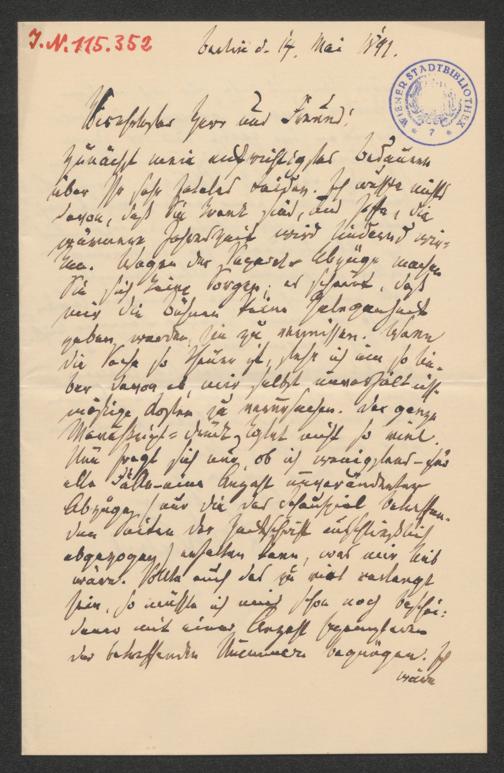 J.N. 115.352
Berlin d. 14. Mai 1891.
WIENER STADTBIBLIOTHEK
* 7 *
Verehrtester Herr und Freund!
Zunächst mein aufrichtigstes Bedauern
über Ihr sehr fatales Leiden. Ich wußte nichts
davon, daß Sie krank sind, und hoffe, die
wärmere Jahreszeit wird lindernd wir-
ken. Wegen der Abzüge machen
Sie sich keine Sorgen; es scheint, daß
mir die Bühnen keine Gelegenheit
geben werden, sie zu vermissen. Wenn
die Sache so theuer ist, stehe ich um so lie-
ber davon ab, mir selbst unverhältniß-
mäßige Kosten zu verursachen. Der ganze
Manuskript=Druck nicht so viel.
Nun fragt sich nur, ob ich wenigstens – für
alle Fälle – eine Anzahl unveränderter
Abzüge (nur die das Schauspiel betreffen-
den Seiten der Zeitschrift
abgezogen) erhalten kann, was mir lieb
wäre. Sollte auch das zu viel verlangt
sein, so müßte ich mich schon noch beschei-
dener mit einer Anzahl
der betreffenden Nummern begnügen. Ich
wäre